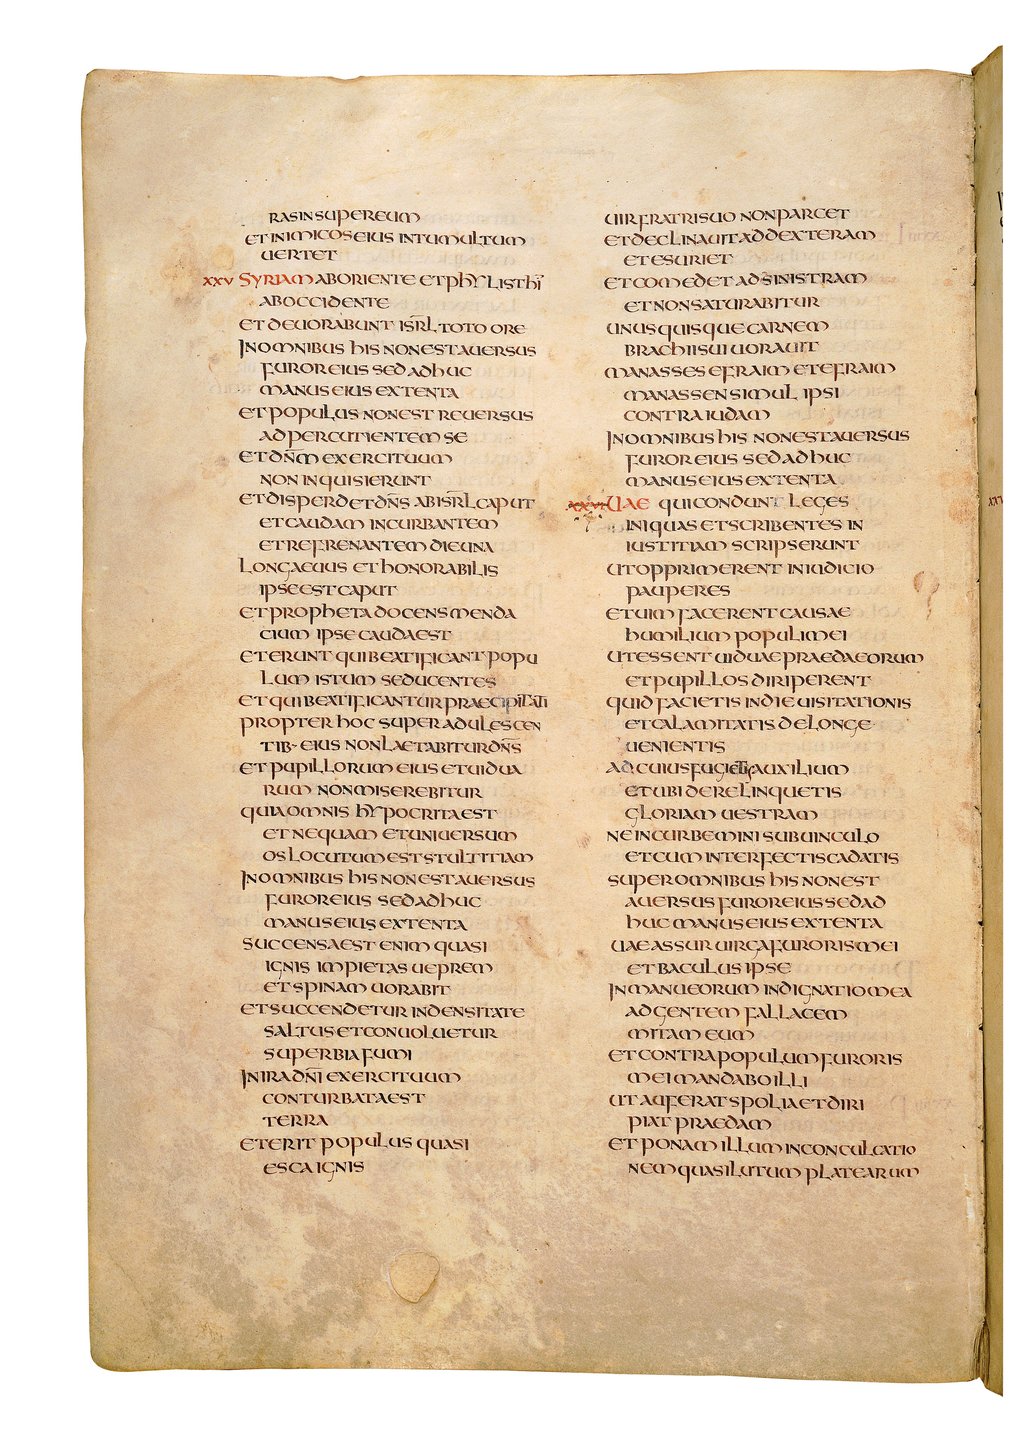 RASIN SUPER EUM
ET INIMICOS EIUS IN TUMULTUM
UERTET
XXV SYRIAM AB ORIENTE ET PHYLISTHĪ
AB OCCIDENTE
ET DEUORABUNT ISR̄L TOTO ORE
IN OMNIBUS HIS NON EST AUERSUS
FUROR EIUS SED ADHUC
MANUS EIUS EXTENTA
ET POPULUS NON EST REUERSUS
AD PERCUTIENTEM SE
ET DN̄M EXERCITUUM
NON INQUISIERUNT
ET DISPERDET DN̄S AB ISR̄L CAPUT
ET CAUDAM INCURBANTEM
ET REFRENANTEM DIE UNA
LONGAEUUS ET HONORABILIS
IPSE EST CAPUT
ET PROPHETA DOCENS MENDA
CIUM IPSE CAUDA EST
ET ERUNT QUI BEATIFICANT POPU
LUM ISTUM SEDUCENTES
ET QUI BEATIFICANTUR PRAECIPITATI
PROPTER HOC SUPER ADULESCEN
TIB· EIUS NON LAETABITUR DN̄S
ET PUPILLORUM EIUS ET UIDUA
RUM NON MISEREBITUR
QUIA OMNIS HYPOCRITA EST
ET NEQUAM ET UNIUERSUM
OS LOCUTUM EST STULTITIAM
IN OMNIBUS HIS NON EST AUERSUS
FUROR EIUS SED ADHUC
MANUS EIUS EXTENTA
SUCCENSA EST ENIM QUASI
IGNIS IMPIETAS UEPREM
ET SPINAM UORABIT
ET SUCCENDETUR IN DENSITATE
SALTUS ET CONUOLUETUR
SUPERBIA FUMI
IN IRA DN̄I EXERCITUUM
CONTURBATA EST
TERRA
ET ERIT POPULUS QUASI
ESCA IGNIS
UIR FRATRI SUO NON PARCET
ET DECLINAUIT AD DEXTERAM
ET ESURIET
ET COMEDET AD SINISTRAM
ET NON SATURABITUR
UNUSQUISQUE CARNEM
BRACHII SUI UORAUIT
MANASSES EFRAIM ET EFRAIM
MANASSEN SIMUL IPSI
CONTRA IUDAM
IN OMNIBUS HIS NON EST AUERSUS
FUROR EIUS SED ADHUC
MANUS EIUS EXTENTA
XXVI UAE QUI CONDUNT LEGES
INIQUAS ET SCRIBENTES IN
IUSTITIAM SCRIPSERUNT
UT OPPRIMERENT IN IUDICIO
PAUPERES
ET UIM FACERENT CAUSAE
HUMILIUM POPULI MEI
UT ESSENT UIDUAE PRAEDA EORUM
ET PUPILLOS DIRIPERENT
QUID FACIETIS IN DIE UISITATIONIS
ET CALAMITATIS DE LONGE
UENIENTIS
AD CUIUS FUGIETIS AUXILIUM
ET UBI DERELINQUETIS
GLORIAM UESTRAM
NE INCURBEMINI SUB UINCULO
ET CUM INTERFECTIS CADATIS
SUPER OMNIBUS HIS NON EST
AUERSUS FUROR EIUS SED AD
HUC MANUS EIUS EXTENTA
UAE ASSUR UIRGA FURORIS MEI
ET BACULUS IPSE
IN MANU EORUM INDIGNATIO MEA
AD GENTEM FALLACEM
MITAM EUM
ET CONTRA POPULUM FURORIS
MEI MANDABO ILLI
UT AUFERAT SPOLIA ET DIRI
PIAT PRAEDAM
ET PONAM ILLUM IN CONCULCATIO
NEM QUASI LUTUM PLATEARUM